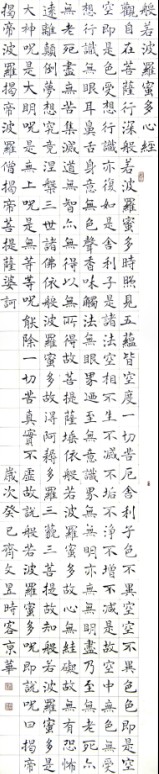 般若波羅蜜多心經
觀自在菩薩行深般若波羅蜜多時照見五蘊皆空度一切苦厄舍利子色不異空空不異色色即是空
空即是色受想行識亦復如是舍利子是諸法空相不生不滅不垢不淨不增不減是故空中無色無受
想行識無眼耳鼻舌身意無色聲香味觸法無眼界乃至無意識界無無明亦無無明盡乃至無老死亦
無老死盡無苦集滅道無智亦無得以無所得故菩提薩埵依般若波羅蜜多故心無罣礙無罣礙故無有恐怖
遠離顛倒夢想究竟涅槃三世諸佛依般若波羅蜜多故得阿耨多羅三藐三菩提故知般若波羅蜜多是
大神呪是大明呪是無上呪是無等等呪能除一切苦真實不虛故說般若波羅蜜多呪即說呪曰揭帝
揭帝波羅揭帝波羅僧揭帝菩提薩婆訶 歲次癸巳齊文昱時客京華